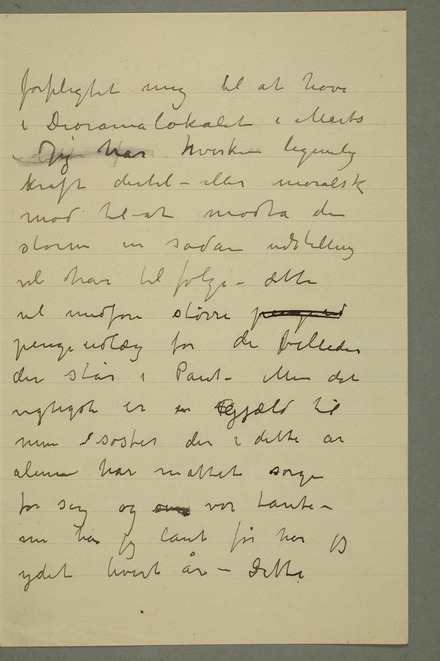 forpligtet mig til at have
i Dioramalokalet i Marts
– Jeg har hverken legemlig
kraft dertil – eller moralsk
mod til at modta den
storm en sådan udstilling
vil ha til følge – dette
vil medføre større
penge udlæg for de billeder
der står i Pant – Men det
vigtigste er en Gjæld til
min Søster der i dette år
alene har måttet sørge
for seg og vor tante –
nu har jeg lånt før har jeg
ydet hvert år – Dette